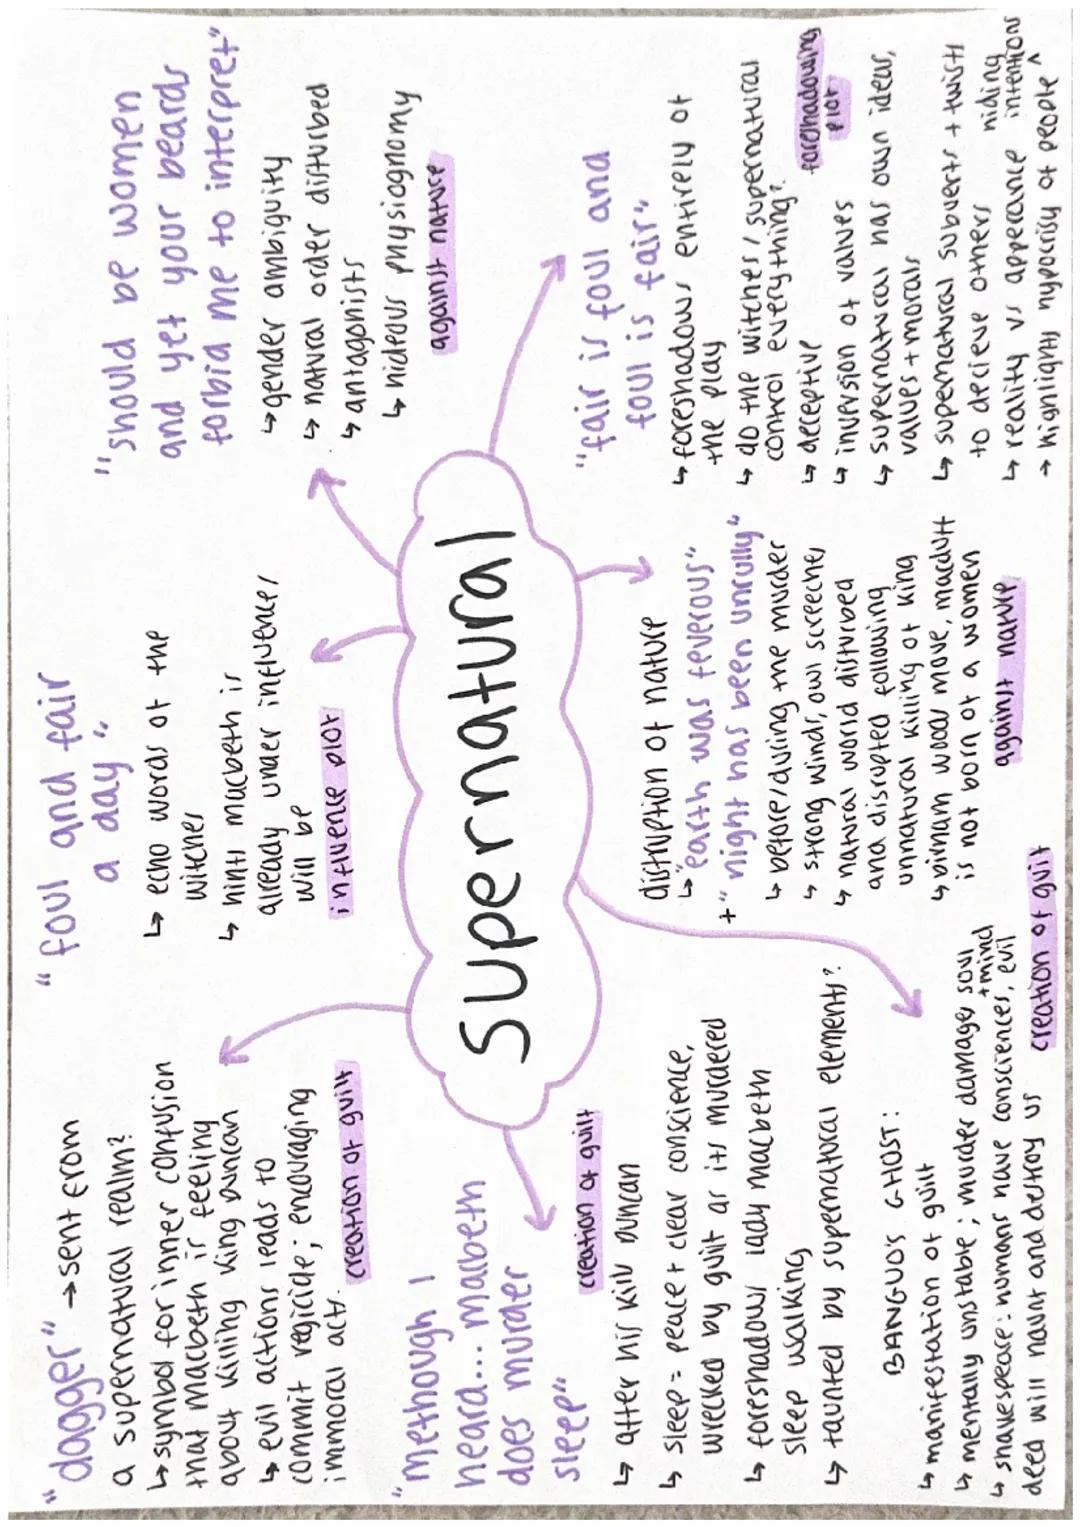 "dagger" → sent from
a supernatural realm?
↳ symbol for inner confusion
that macbeth is feeling
about killing king duncan
↳ evil actions leads to
commit regicide; encouraging
immoral acts.
creation of guilt
"foul and fair
a day"
↳ echo words of the
witches
↳ hints macbeth is
already under influence/
will be
influence plot
"should be women
and yet your beards
forbid me to interpret"
↳ gender ambiguity
↳ natural order disturbed
↳ antagonists
↳ hideous physiognomy
against nature
Supernatural
"methough I
heard... macbeth
does murder
sleep"
creation of guilt
↳ after his kills duncan
↳ sleep = peace + clear conscience,
wrecked by guilt as its murdered
↳ foreshadows lady macbeth
sleep walking
↳ taunted by supernatural elements?
BANQUO'S GHOST:
↳ manifestation of guilt
↳ mentally unstable; murder damages soul
+ mind
↳ shakespeare: humans have consciences, evil
deed will haunt and destroy us
creation of guilt
disruption of nature
↳ "earth was feverous"
+ "night has been unrully"
↳ before/during the murder
↳ strong winds, owl screeches
↳ natural word disturbed
and disrupted following
unnatural killing of king
↳ birnam wood move, macduff
is not born of a women
against nature
"fair is foul and
foul is fair"
↳ foreshadows entirely of
the play
↳ do the witches / supernatural
control everything?
↳ deceptive
foreshadowing
plot
↳ inversion of values
↳ supernatural has own ideas,
values + morals
↳ supernatural subverts + twists
to decieve others
↳ reality vs apperance
hiding
intentions
→ highlights hypocrisy of people ^